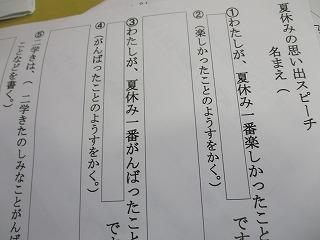 夏休みの思い出スピーチ
名まえ（
①わたしが、夏休み一番楽しかったこと
です
②（楽しかったことのようすをかく。）
③わたしが、夏休み一番がんばったこと
です
④（がんばったことのようすをかく。）
⑤二学きは、（　二学きたのしみなことがんば
ことなどを書く。）